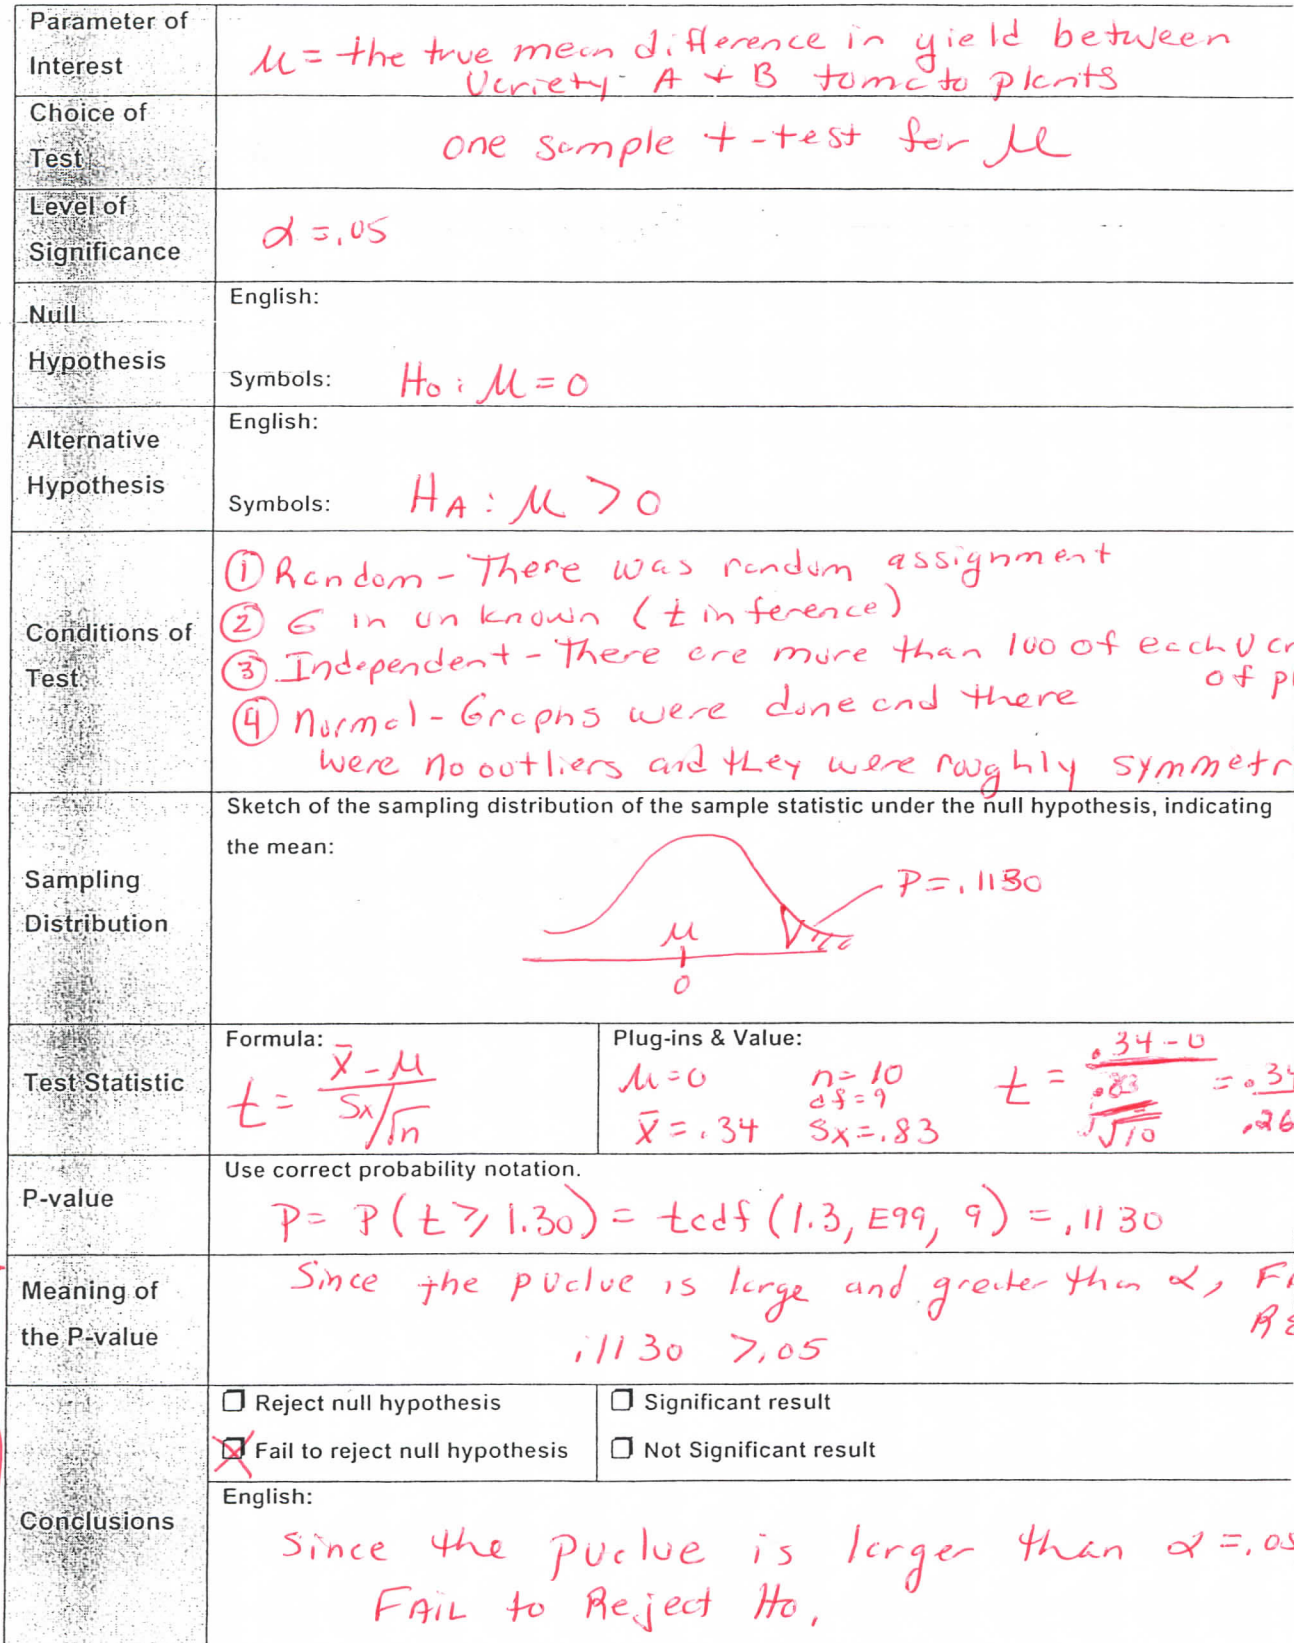 Parameter of
Interest
μ = the true mean difference in yield between
Variety A + B tomato plants
Choice of
Test
one sample t-test for μ
Level of
Significance
α = .05
Null
Hypothesis
English:
Symbols: H₀ : μ = 0
Alternative
Hypothesis
English:
Symbols: H_A : μ > 0
Conditions of
Test
① Random - There was random assignment
② σ in unknown (t inference)
③ Independent - There are more than 100 of each
of
④ Normal - Graphs were done and there
were no outliers and they were roughly symmetr
Sampling
Distribution
Sketch of the sampling distribution of the sample statistic under the null hypothesis, indicating
the mean:
P = .1130
μ
0
Test Statistic
Formula:
t = (x̄ - μ) / (Sx/√n)
Plug-ins & Value:
μ = 0 n = 10
df = 9
x̄ = .34 Sx = .83
t = (.34 - 0) / (.83/√10) = .34 / .26
P-value
Use correct probability notation.
P = P(t ≥ 1.30) = tcdf (1.3, E99, 9) = .1130
Meaning of
the P-value
Since the pvalue is large and greater than α,
.1130 > .05
Conclusions
Reject null hypothesis
Fail to reject null hypothesis
Significant result
Not Significant result
English:
Since the pvalue is larger than α = .05
FAIL to Reject H₀.